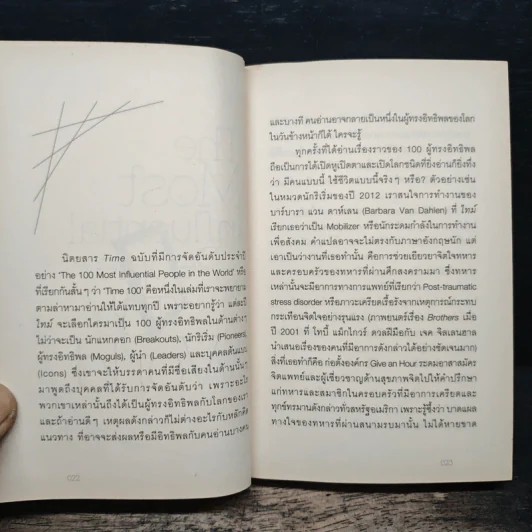 นิตยสาร Time ฉบับที่มีการจัดอันดับประจำปี
อย่าง 'The 100 Most Influential People in the World' หรือ
ที่เรียกกันสั้น ๆ ว่า 'Time 100' คือหนึ่งในเล่มที่เราจะพยายาม
ตามล่าหามาอ่านให้ได้แทบทุกปี เพราะอยากรู้ว่า แต่ละปี
ไทม์ จะเลือกใครมาเป็น 100 ผู้ทรงอิทธิพลในด้านต่างๆ
ไม่ว่าจะเป็น นักแหกคอก (Breakouts), นักริเริ่ม (Pioneers,
ผู้ทรงอิทธิพล (Moguls), ผู้นำ (Leaders) และบุคคลต้นแบบ
(Icons) ซึ่งเขาจะให้บรรดาคนที่มีชื่อเสียงในด้านนั้น
มาพูดถึงบุคคลที่ได้รับการจัดอันดับว่า เพราะอะไร
พวกเขาเหล่านั้นถึงได้เป็นผู้ทรงอิทธิพลกับโลกของเรา
และถ้าอ่านดีๆ เหตุผลดังกล่าวก็ไม่ต่างอะไรกับหลักคิด
แนวทาง ที่อาจจะส่งผลหรือมีอิทธิพลกับคนอ่านบางคน
022
และบางที คนอ่านอาจกลายเป็นหนึ่งในผู้ทรงอิทธิพลของโลก
ในวันข้างหน้าก็ได้ ใครจะรู้
ทุกครั้งที่ได้อ่านเรื่องราวของ 100 ผู้ทรงอิทธิพล
ถือเป็นการได้เปิดหูเปิดตาและเปิดโลกชนิดที่ยิ่งอ่านก็ยิ่งทึ่ง
ว่า มีคนแบบนี้ ใช้ชีวิตแบบนี้จริงๆ หรือ? ตัวอย่างเช่น
ในหมวดนักริเริ่มของปี 2012 เราสนใจการทำงานของ
บาร์บารา แวน ดาห์เลน (Barbara Van Dahlen) ที่ ไทม์
เรียกเธอว่าเป็น Mobilizer หรือนักระดมกำลังในการทำงาน
เพื่อสังคม คำแปลอาจจะไม่ตรงกับภาษาอังกฤษนัก แต่
เอาเป็นว่างานที่เธอทำนั้น คือการช่วยเยียวยาจิตใจทหาร
และครอบครัวของทหารที่ผ่านศึกสงครามมา ซึ่งทหาร
เหล่านั้นจะมีอาการทางการแพทย์ที่เรียกว่า Post-traumatic
stress disorder หรือภาวะเครียดเรื้อรังจากเหตุการณ์กระทบ
กระเทือนจิตใจอย่างรุนแรง (ภาพยนตร์เรื่อง Brothers เมื่อ
ปี 2001 ที่ โทบี้ แม็กไกวร์ ดวลฝีมือกับ เจค จิลเลนฮาล
นำเสนอเรื่องของคนที่มีอาการดังกล่าวได้อย่างชัดเจนมาก)
สิ่งที่เธอทำก็คือ ก่อตั้งองค์กร Give an Hour ระดมอาสาสมัคร
จิตแพทย์และผู้เชี่ยวชาญด้านสุขภาพจิตไปให้คำปรึกษา
แก่ทหารและสมาชิกในครอบครัวที่มีอาการเครียดและ
ทุกข์ทรมานดังกล่าวทั่วสหรัฐอเมริกา เพราะรู้ซึ้งว่า บาดแผล
ทางใจของทหารที่ผ่านสนามรบมานั้น ไม่ได้หายขาด
023